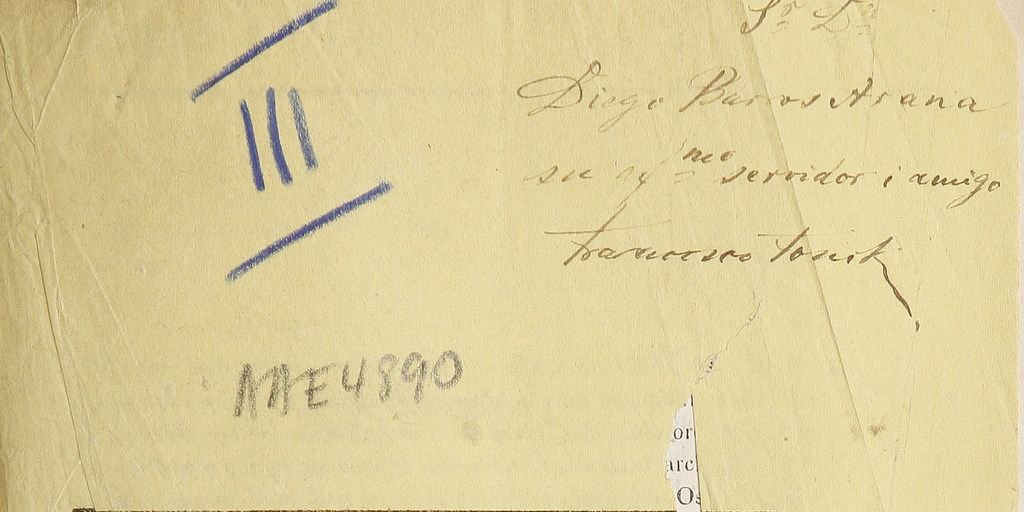 Sr Dn
III
Diego Barros Arana
su af mo servidor i amigo
Francisco
AAE4890
or
arc
Os